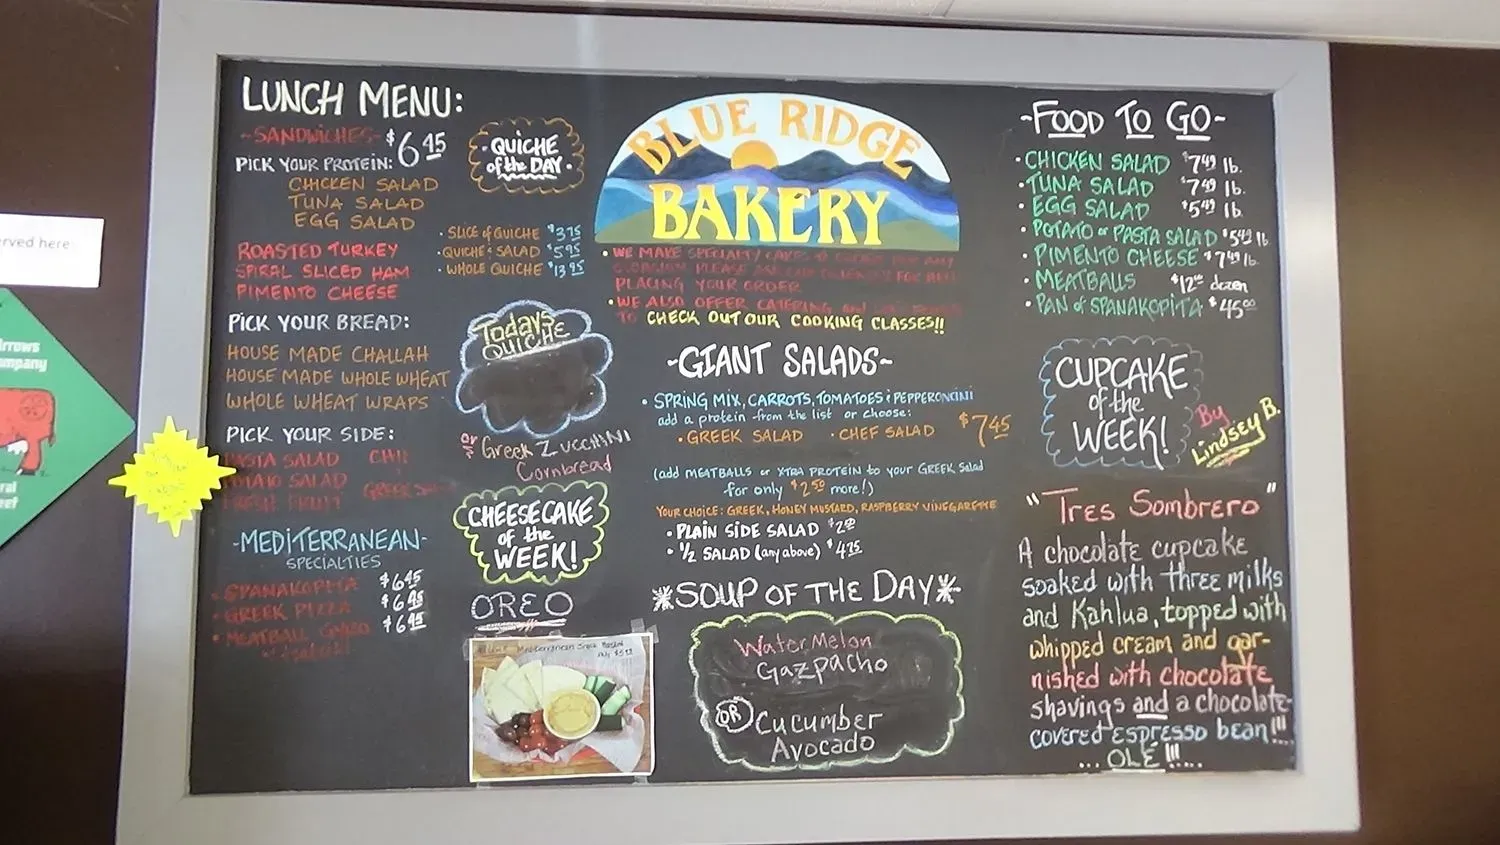 LUNCH MENU:
-SANDWICHES- $6 45
PICK YOUR PROTEIN:
CHICKEN SALAD
TUNA SALAD
EGG SALAD
ROASTED TURKEY
SPIRAL SLICED HAM
PIMENTO CHEESE
PICK YOUR BREAD:
HOUSE MADE CHALLAH
HOUSE MADE WHOLE WHEAT
WHOLE WHEAT WRAPS
PICK YOUR SIDE:
PASTA SALAD
POTATO SALAD
FRESH FRUIT
-MEDITERRANEAN-
SPECIALTIES
• SPANAKOPITA $6 45
• GREEK PIZZA $6 45
• MEATBALL GYRO $6 45
• QUICHE of the DAY •
• SLICE of QUICHE $3 75
• QUICHE & SALAD $5 95
• WHOLE QUICHE $13 95
Todays
QUICHE
or Greek ZUCCHINI
Cornbread
CHEESECAKE
of the
WEEK!
OREO
Mediterranean Snack
BLUE RIDGE
BAKERY
• WE MAKE SPECIALTY CAKES
PLEASE
PLACING YOUR ORDER
• WE ALSO OFFER CATERING and
TO CHECK OUT OUR COOKING CLASSES!!
-GIANT SALADS-
• SPRING MIX, CARROTS, TOMATOES & PEPPERONCINI
add a protein from the list or choose:
• GREEK SALAD • CHEF SALAD $7 45
(add MEATBALLS or XTRA PROTEIN to your GREEK Salad
for only $2 50 more!)
YOUR CHOICE: GREEK, HONEY MUSTARD, RASPBERRY VINEGARETTE
• PLAIN SIDE SALAD
• 1/2 SALAD (any above) $4 75
*SOUP OF THE DAY*
WATERMELON
GAZPACHO
OR CUCUMBER
AVOCADO
-FOOD TO GO-
• CHICKEN SALAD $7 49 lb.
• TUNA SALAD $7 49 lb.
• EGG SALAD $5 49 lb.
• POTATO or PASTA SALAD $5 49 lb.
• PIMENTO CHEESE $7 49 lb.
• MEATBALLS $12 00 dozen
• PAN of SPANAKOPITA $45 00
CUPCAKE
of the
WEEK!
By
Lindsey B.
"Tres Sombrero"
A chocolate cupcake
soaked with three milks
and Kahlua, topped with
whipped cream and gar-
nished with chocolate
shavings and a chocolate-
covered espresso bean!!!
... OLÉ!!!...
erved here